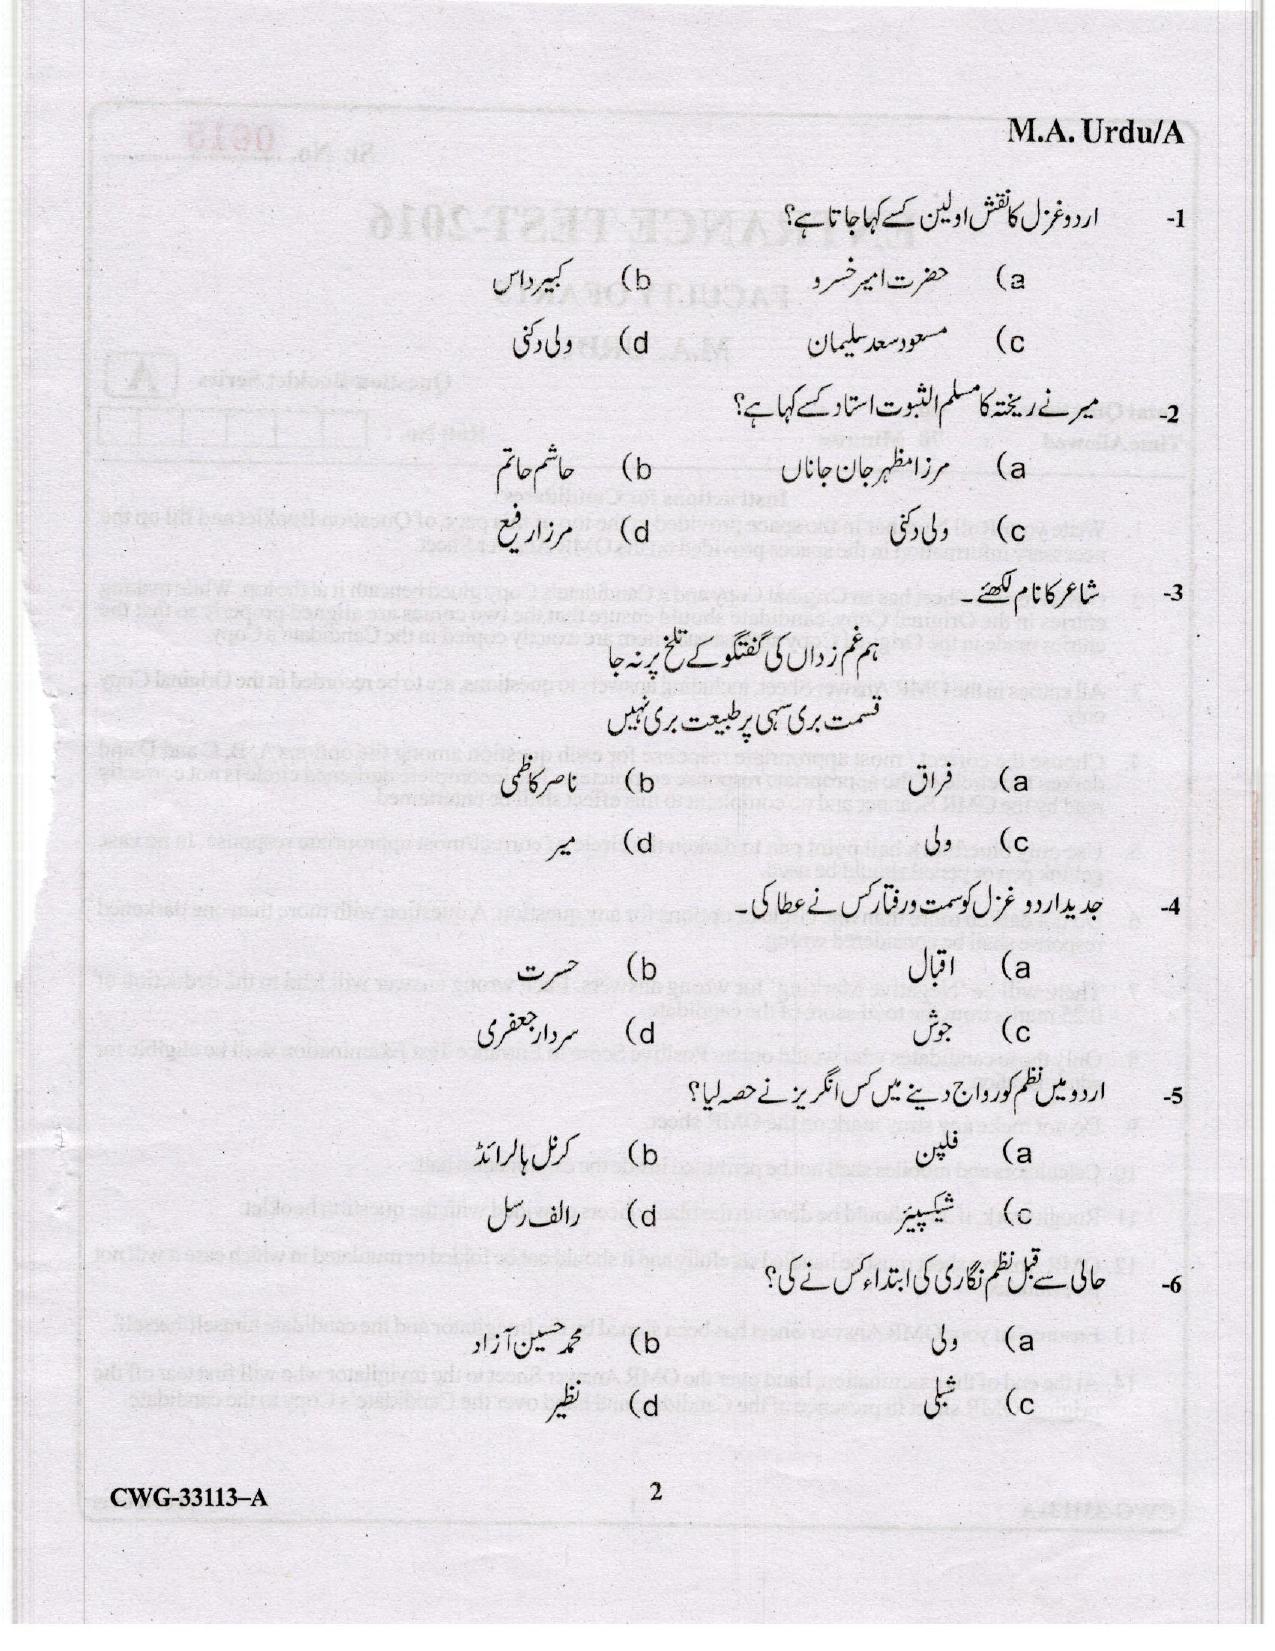 M.A. Urdu/A
1- اردو غزل کا نقش اولین کسے کہا جاتا ہے؟
a) حضرت امیر خسرو b) کبیر داس
c) مسعود سعد سلیمان d) ولی دکنی
2- میر نے ریختہ کا مسلم الثبوت استاد کسے کہا ہے؟
a) مرزا مظہر جان جاناں b) حاشم حاتم
c) ولی دکنی d) مرزا رفیع
3- شاعر کا نام لکھئے۔
ہم غم زداں کی گفتگو کے تلخ پر نہ جا
قسمت بری سہی پر طبیعت بری نہیں
a) فراق b) ناصر کاظمی
c) ولی d) میر
4- جدید اردو غزل کو سمت و رفتار کس نے عطا کی۔
a) اقبال b) حسرت
c) جوش d) سردار جعفری
5- اردو میں نظم کو رواج دینے میں کس انگریز نے حصہ لیا؟
a) فلپن b) کرنل ہالرائڈ
c) شیکسپیئر d) رالف رسل
6- حالی سے قبل نظم نگاری کی ابتداء کس نے کی؟
a) ولی b) محمد حسین آزاد
c) شبلی d) نظیر
CWG-33113–A 2